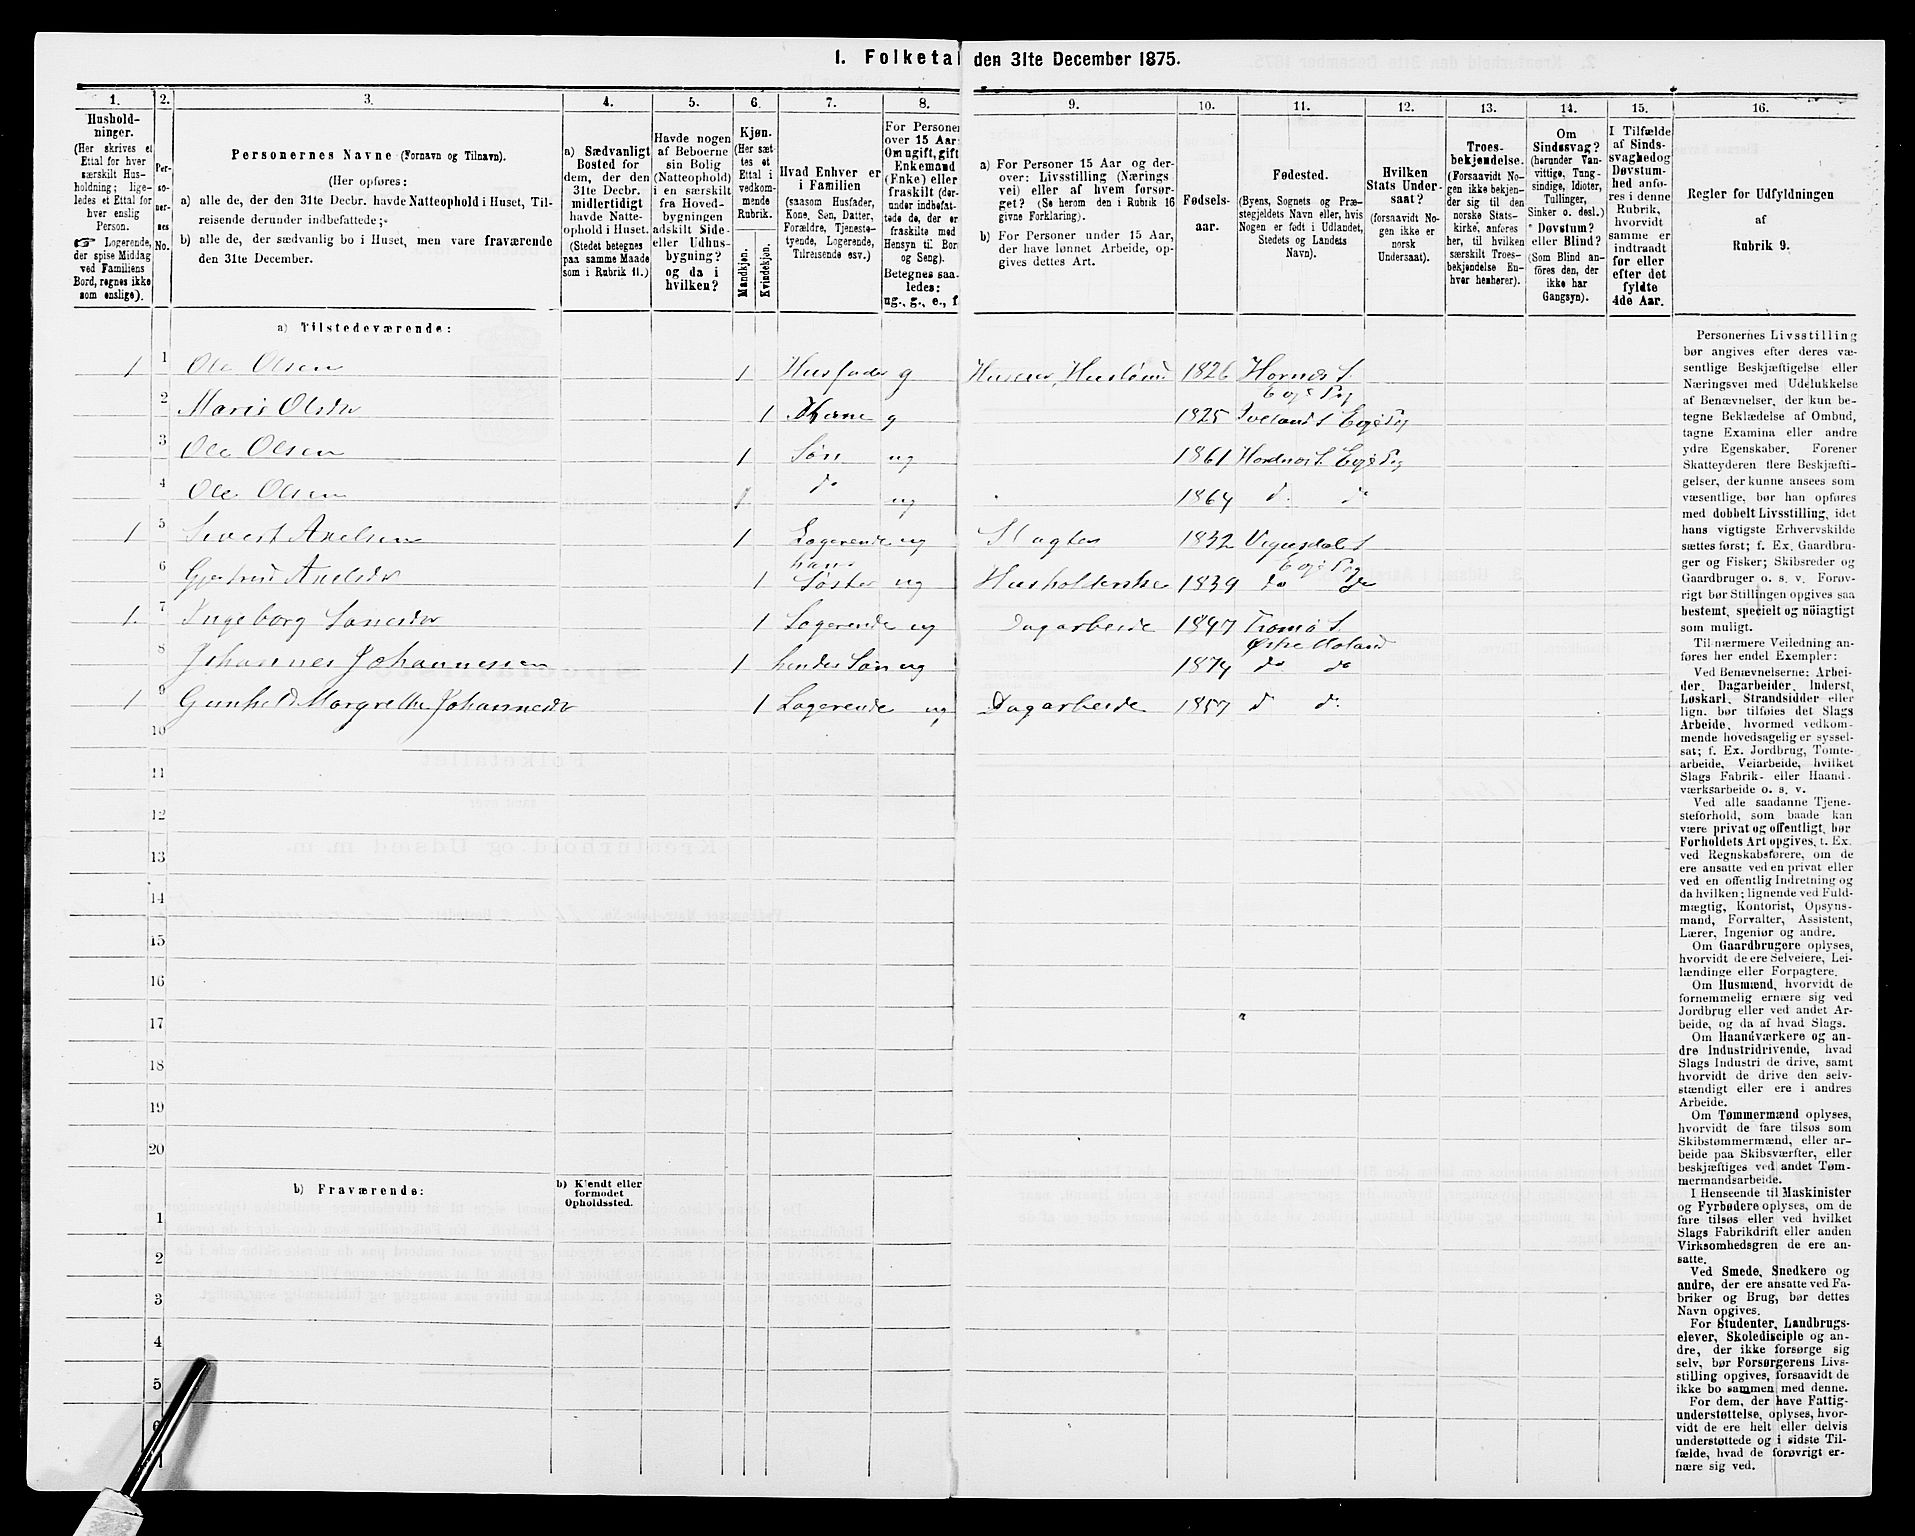 1. Folketal den 31te December 1875.
1. 2. 3. 4. 5. 6. 7. 8. 9. 10. 11. 12. 13. 14. 15. 16.
Hushold-
ninger.
(Her skrives et
Ettal for hver
særskilt Hus-
holdning; lige-
ledes et Ettal for
hver enslig
Person.
☞ Logerende,
der spise Middag
ved Familiens
Bord, regnes ikke
som enslige).
Per-
so-
ner-
nes
No.
Personernes Navne (Fornavn og Tilnavn).
(Her opføres:
a) alle de, der den 31te Decbr. havde Natteophold i Huset, Til-
reisende derunder indbefattede;
b) alle de, der sædvanlig bo i Huset, men vare fraværende
den 31te December.
a) Sædvanligt
Bosted for
dem, der den
31te Decbr.
midlertidigt
havde Natte-
ophold i Huset.
(Stedet betegnes
paa samme Maade
som i Rubrik 11.)
Havde nogen
af Beboerne
sin Bolig
(Natteophold)
i en særskilt
fra Hoved-
bygningen
adskilt Side-
eller Udhus-
bygning?
og da i
hvilken?
Kjøn.
(Her sæt-
tes et
Ettal i
vedkom-
mende
Rubrik.
Mandkjøn.
Kvindekjøn.
Hvad Enhver er
i Familien
(saasom Husfader,
Kone, Søn, Datter,
Forældre, Tjeneste-
tyende, Logerende,
Tilreisende osv.)
For Personer
over 15 Aar:
Om ugift, gift,
Enkemand
(Enke) eller
fraskilt (der-
under indbefat-
tede de, der er
fraskilte med
Hensyn til Bord
og Seng).
Betegnes saa-
ledes:
ug., g., e., f.
a) For Personer 15 Aar og der-
over: Livsstilling (Nærings-
vei) eller af hvem forsør-
get? (Se herom den i Rubrik 16
givne Forklaring).
b) For Personer under 15 Aar,
der have lønnet Arbeide, op-
gives dettes Art.
Fødsels-
aar.
Fødested.
(Byens, Sognets og Præ-
stegjeldets Navn eller, hvis
Nogen er født i Udlandet,
Stedets og Landets
Navn).
Hvilken
Stats Under-
saat?
(forsaavidt No-
gen ikke er
norsk
Undersaat).
Troes-
bekjendelse.
(Forsaavidt No-
gen ikke bekjen-
der sig til den
norske Stats-
kirke, anføres
her, til hvilken
særskilt Troes-
bekjendelse En-
hver henhører).
Om
Sindssvag?
(herunder Van-
vittige, Tung-
sindige, Idioter,
Tullinger,
Sinker o. desl.)
Døvstum?
eller Blind?
(Som Blind an-
føres den, der
ikke har
Gangsyn).
I Tilfælde
af Sinds-
svaghed og
Døvstum-
hed anfø-
res i denne
Rubrik,
hvorvidt
samme er
indtraadt
før eller
efter det
fyldte
4de Aar.
Regler for Udfyldningen
af
Rubrik 9.
a) Tilstedeværende:
1 1 Ole Olsen 1 Husfader g 1826 Hornæs S.
Egje Pg
2 1 Kone g 1825 Iveland S Egje Pg
3 Ole Olsen 1 Søn ug 1861 Egje Pg
4 Ole Olsen 1 do ug 1864 do do
1 5 Sivert Axelsen 1 Logerende ug 1832 Vegusdal S
Egje Pg
6 1 hans Søster ug Husholderske 1839 do do
1. 7 Ingeborg 1 Logerende ug Dagarbeide 1847 Tromø S.
Østre Moland
8 Johannes Johannessen 1 hendes Søn ug 1874 do do
1 9 Gunhild Margrethe Johannesdr 1 Logerende ug Dagarbeide 1857 do do
10
11
12
13
14
15
16
17
18
19
20
b) Fraværende:
b) Kjendt eller
formodet
Opholdssted.
1
2
3
4
5
6
Personernes Livsstilling
bør angives efter deres væ-
sentlige Beskjæftigelse eller
Næringsvei med Udelukkelse
af Benævnelser, der kun be-
tegne Beklædelse af Ombud,
tagne Examina eller andre
ydre Egenskaber. Forener
Skatteyderen flere Beskjæfti-
gelser, der kunne ansees som
væsentlige, bør han opføres
med dobbelt Livsstilling, idet
hans vigtigste Erhvervskilde
sættes først; f. Ex. Gaardbru-
ger og Fisker; Skibsreder og
Gaardbruger o. s. v. Forøv-
rigt bør Stillingen opgives saa
bestemt, specielt og nöiagtigt
som muligt.
Til nærmere Veiledning an-
føres her endel Exempler:
Ved Benævnelserne: Arbei-
der, Dagarbeider, Inderst,
Løskarl, Strandsidder eller
lign. bør tilføies det Slags
Arbeide, hvormed vedkom-
mende hovedsagelig er syssel-
sat; f. Ex. Jordbrug, Tomte-
arbeide, Veiarbeide, hvilket
Slags Fabrik- eller Haand-
værksarbeide o. s. v.
Ved alle saadanne Tjene-
steforhold, som baade kan
være privat og offentligt, bør
Forholdets Art opgives, t. Ex.
ved Regnskabsførere, om de
ere ansatte ved en privat eller
ved en offentlig Indretning og
da hvilken; lignende ved Fuld-
mægtig, Kontorist, Opsyns-
mand, Forvalter, Assistent,
Lærer, Ingeniør og andre.
Om Gaardbrugere oplyses,
hvorvidt de ere Selveiere, Lei-
lændinge eller Forpagtere.
Om Husmænd, hvorvidt de
fornemmelig ernære sig ved
Jordbrug eller ved andet Ar-
beide, og da af hvad Slags.
Om Haandværkere og an-
dre Industridrivende, hvad
Slags Industri de drive, samt
hvorvidt de drive den selv-
stændigt eller ere i andres
Arbeide.
Om Tømmermænd oplyses,
hvorvidt de fare tilsøs som
Skibstømmermænd, eller ar-
beide paa Skibsværfter, eller
beskjæftiges ved andet Tøm-
mermandsarbeide.
I Henseende til Maskinister
og Fyrbødere oplyses, om de
fare tilsøs eller ved hvilket
Slags Fabrikdrift eller anden
Virksomhedsgren de ere an-
satte.
Ved Smede, Snedkere og
andre, der ere ansatte ved Fa-
briker og Brug, bør dettes
Navn opgives.
For Studenter, Landbrugs-
elever, Skoledisciple og an-
dre, der ikke forsørge sig
selv, bør Forsørgerens Livs-
stilling opgives, forsaavidt de
ikke bo sammen med denne.
For dem, der have Fattig-
understøttelse, oplyses, hvor-
vidt de ere helt eller delvis
understøttede og i sidste Til-
fælde, hvad de forøvrigt er-
nære sig ved.